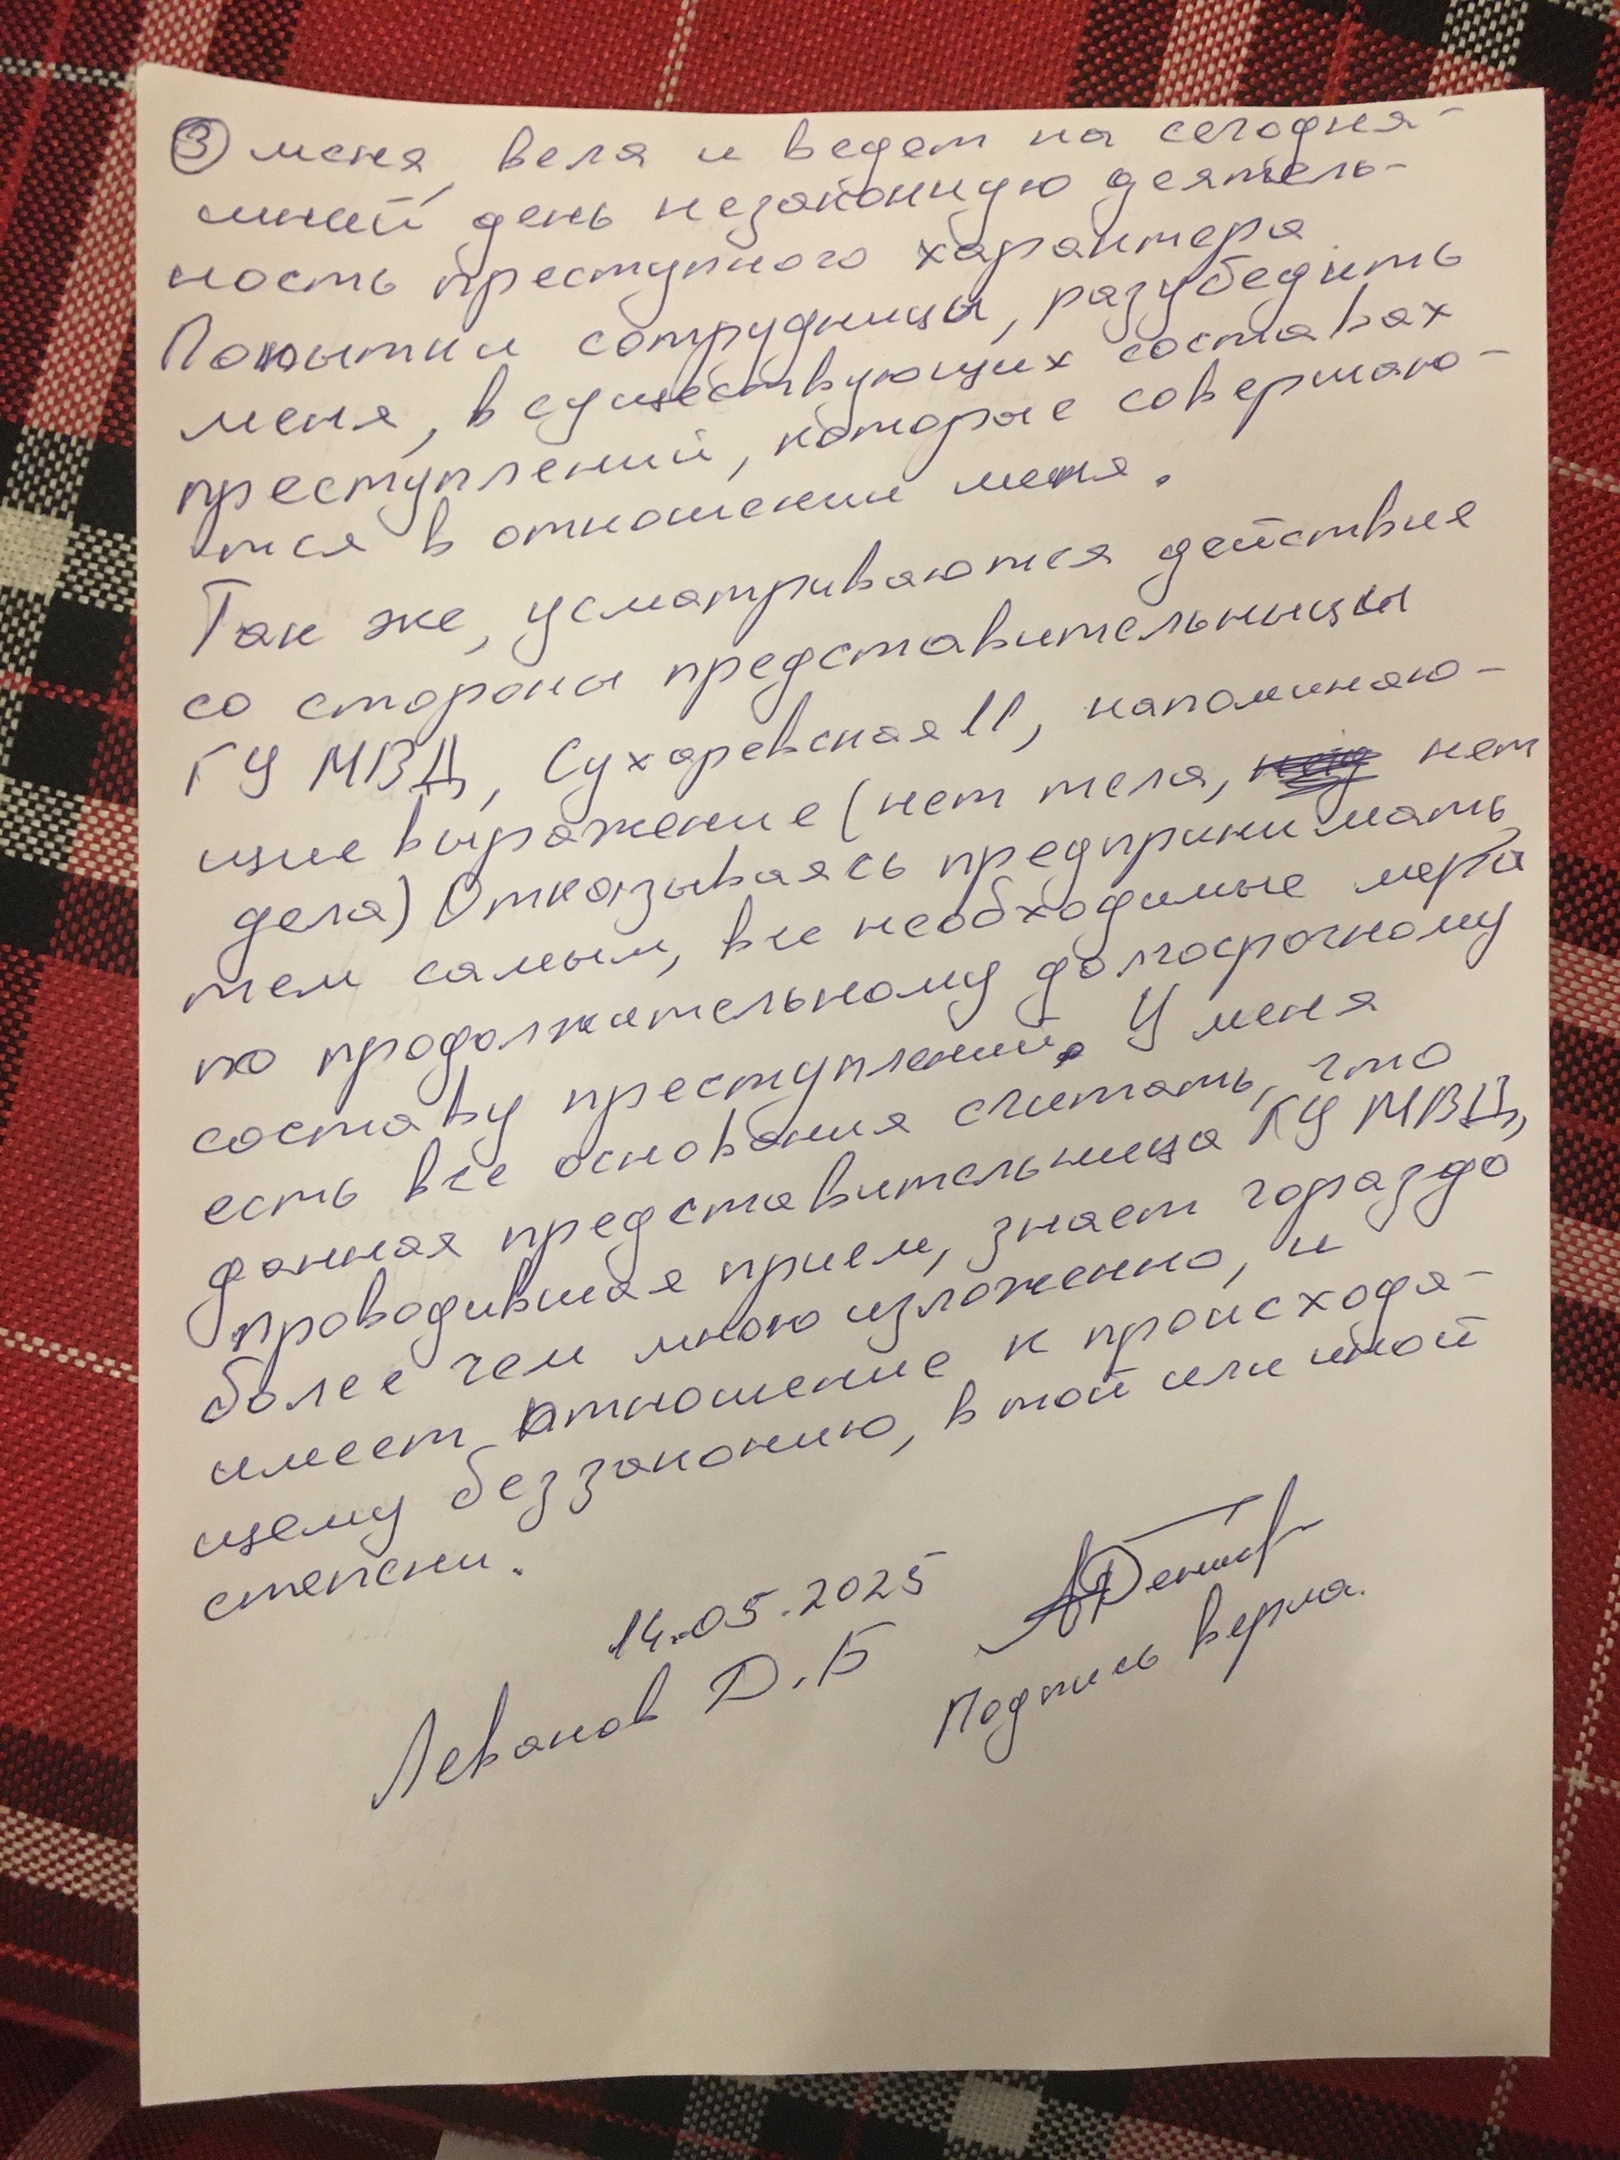 ③ меня, веля и ведет на сегодня-
шний день незаконную деятель-
ность преступного характера
Попытки сотрудницы, разубедить
меня, в существующих составах
преступлений, которые совершаю-
тся в отношении меня.
Так же, усматриваются действие
со стороны представительницы
ГУ МВД, Сухаревская 11, напоминаю-
щие выражение (нет тела, нет
дела) Отказываясь предпринимать
тем самым, все необходимые меры
по продолжительному долгосрочному
составу преступлений. У меня
есть все основания считать, что
данная представительница ГУ МВД,
проводившая прием, знает гораздо
более чем мною изложенно, и
имеет отношение к происходя-
щему беззаконию, в той или иной
степени.
14.05.2025
Леванов Д.Б
Подпись верна.